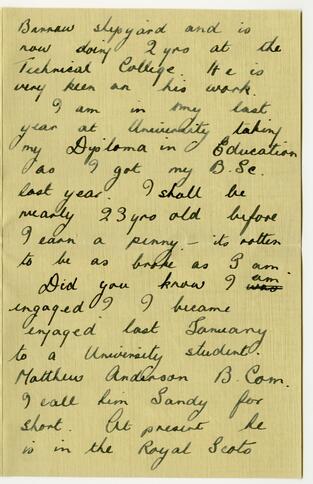 Barrow shipyard and is
now doing 2 yrs at the
Technical College. He is
very keen on his work.
I am in my last
year at University taking
my Diploma in Education
as I got my B.Sc.
last year. I shall be
nearly 23 yrs old before
I earn a penny – its rotten
to be as broke as I am.
Did you know I was am
engaged? I became
engaged last January
to a University student.
Matthew Anderson B. Com.
I call him Sandy for
short. At present he
is in the Royal Scots